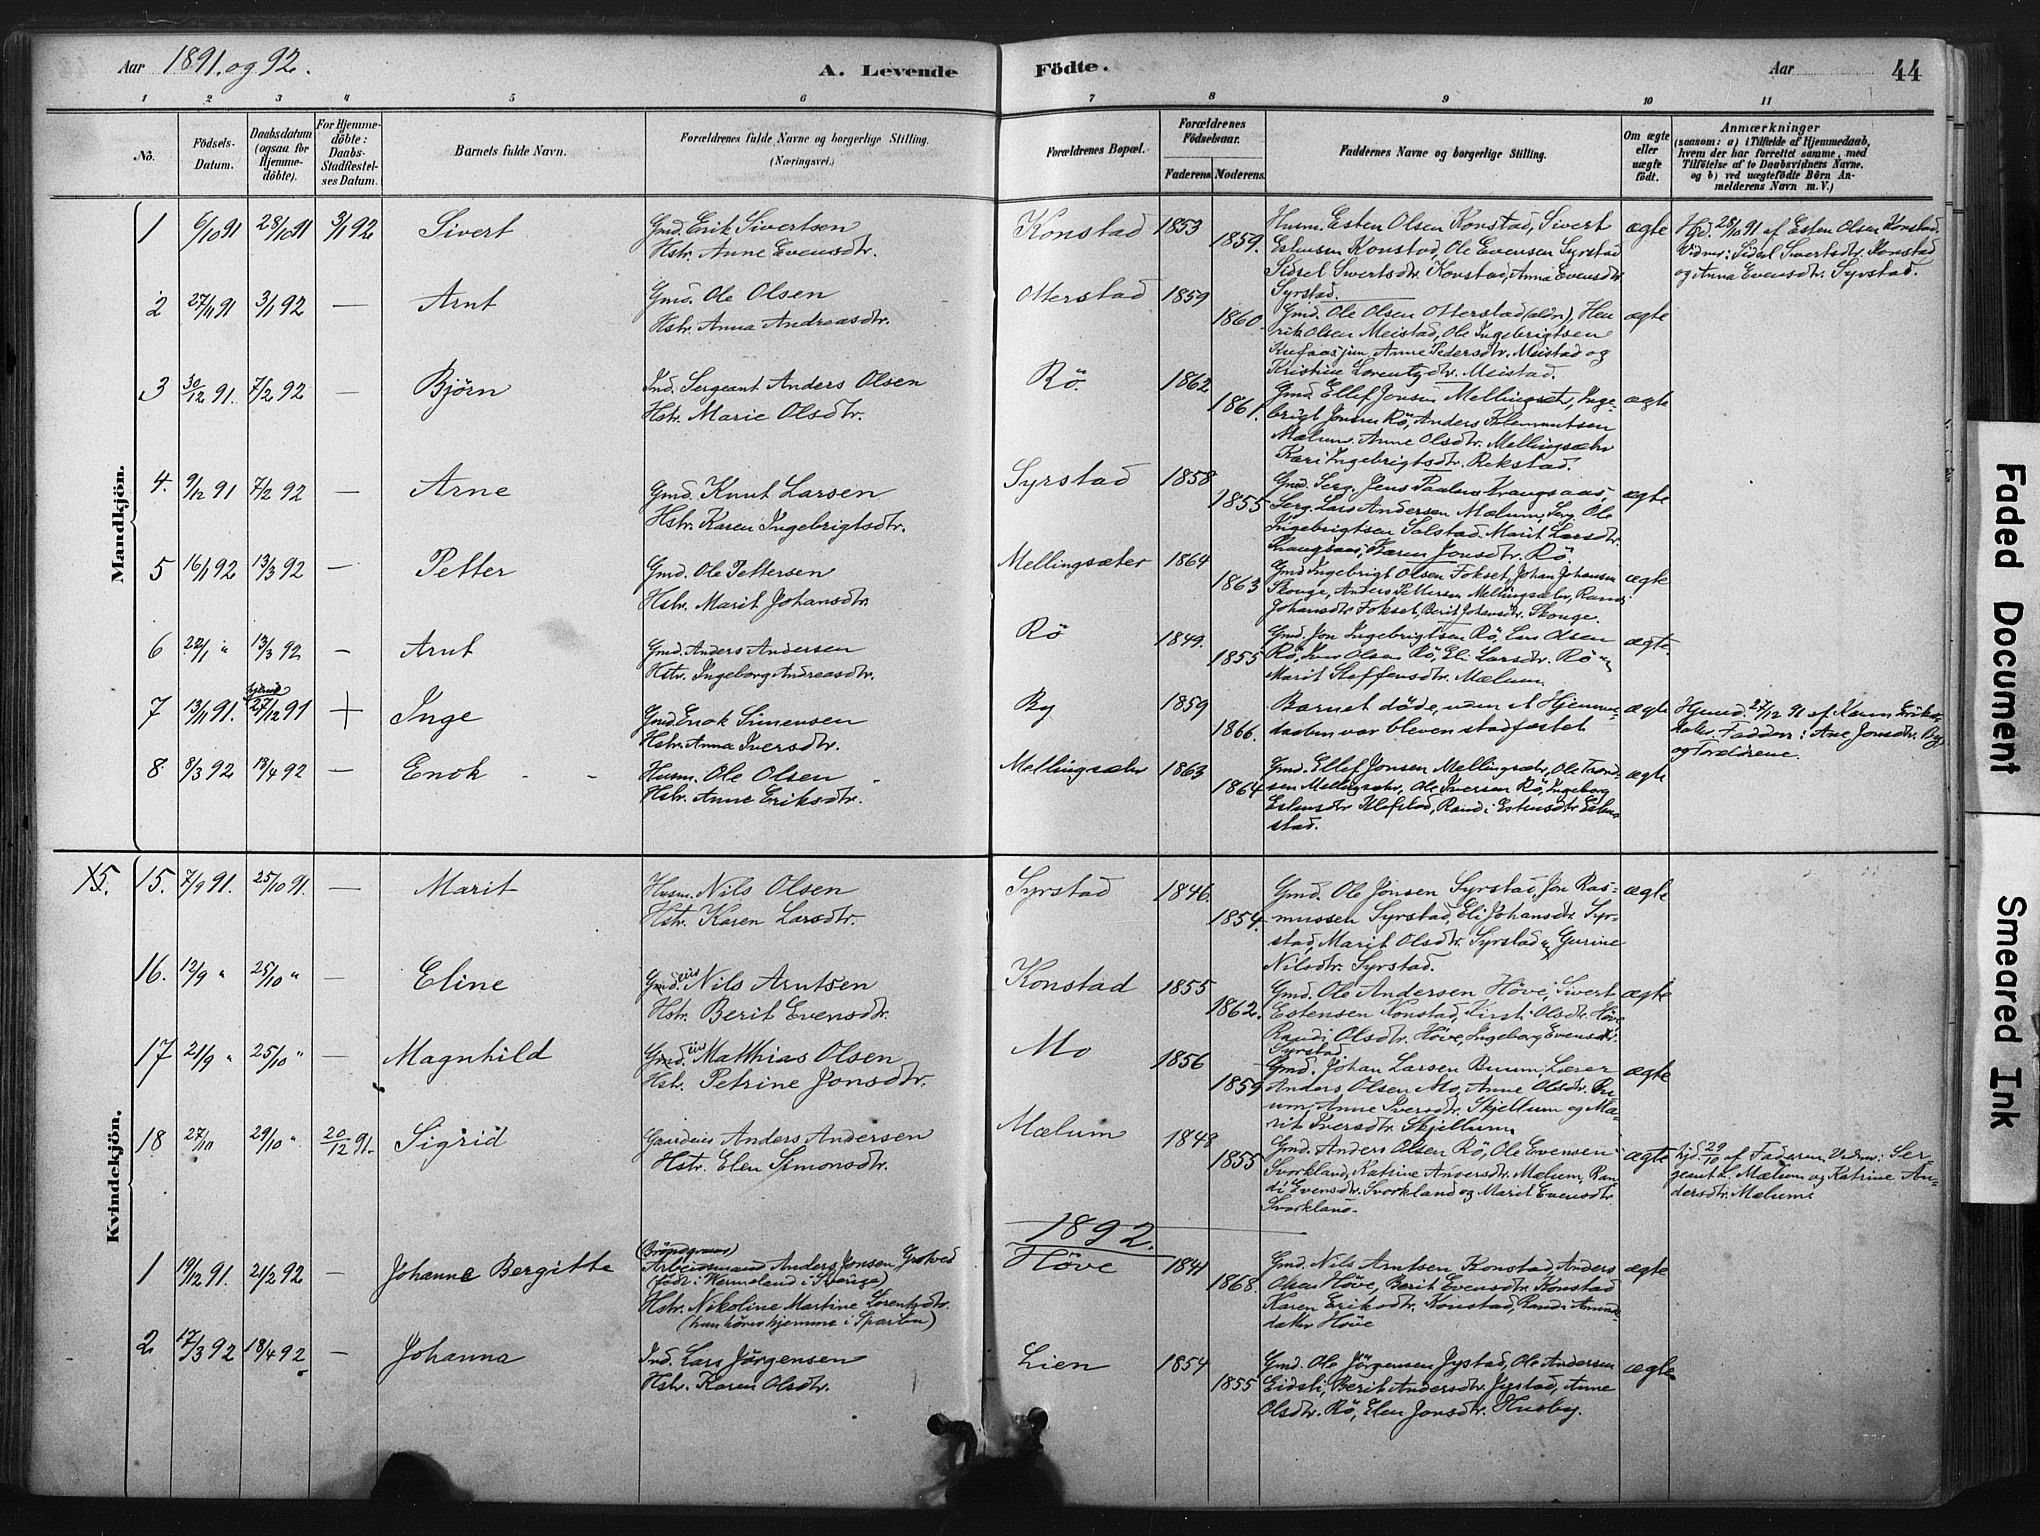 Aar 1891. og 92.
A. Levende Födte.
Aar
44
1 2 3 4 5 6 7 8 9 10 11
No.
Födsels-Datum.
Daabsdatum (ogsaa for Hjemme-döbte).
For Hjemme-döbte: Daabs-Stadfæstel-ses Datum.
Barnets fulde Navn.
Forældrenes fulde Navne og borgerlige Stilling. (Næringsvei.)
Forældrenes Bopæl.
Forældrenes Födselsaar.
Faderens. Moderens.
Faddernes Navne og borgerlige Stilling.
Om ægte eller uægte födt.
Anmærkninger
(saasom: a) i Tilfælde af Hjemmedaab, hvem der har forrettet samme, med Tilföielse af to Daabsvidners Navne. og b) ved uægtefödte Börn An-melderens Navn m. V.)
Mandkjön.
1 6/10 91 28/10 91 3/1 92 Sivert
Gmd. Erik Sivertsen
Hstr. Anne Evensdtr.
Konstad 1853 1859.
Husm. Esten Olsen Konstad, Sivert
Estensen Konstad, Ole Evensen Syrstad
Sidsel Sivertsdtr. Konstad, Anna Evensdtr
Syrstad.
ægte
Hjd. 28/10 91 af Esten Olsen Konstad.
Vidner: Sidsel Sivertsdtr. Konstad
og Anna Evensdtr Syrstad.
2 27/11 91 3/1 92 — Arnt
Gmd. Ole Olsen
Hstr. Anna Andreasdtr.
Otterstad 1859 1860.
Gmd. Ole Olsen Otterstad (ældr), Hen
rik Olsen Meistad, Ole Ingebrigtsen
jun. Anne Pedersdtr. Meistad og
Kristine Lorentzdtr. Meistad.
ægte
3 30/12 91. 7/2 92 — Björn
Ind. Sergeant Anders Olsen
Hstr. Marie Olsdtr.
Rö. 1862 1861.
Gmd. Ellef Jonsen Mellingsæt, Inge-
brigt Jonsen Rö, Anders Klemmetsen
Mælum. Anne Olsdtr. Mellingsæter
Kari Ingebrigtsdtr. Rekstad.
ægte
4. 9/12 91 7/2 92 — Arne
Gmd. Knut Larsen
Hstr. Karen Ingebrigtsdtr.
Syrstad 1858 1855
Gmd. Serg. Jens Paulsen Krangsaas,
Serg. Lars Andersen Mælum, Serg. Ole
Ingebrigtsen Solstad. Marit Larsdtr.
Krangsaas, Karen Jonsdtr. Rö
ægte
5 16/1 92 13/3 92 — Petter
Gmd. Ole Pettersen
Hstr. Marit Johansdtr.
Mellingsæter 1864 1863
Gmd Ingebrigt Olsen Fokset, Johan Johansen
Skouge, Anders Pettersen Mellingsæter, Randi
Johansdtr Fokset, Berit Johansdtr. Skouge.
ægte
6 22/1 " 13/3 92 — Arnt
Gmd. Anders Andersen
Hstr. Ingeborg Andreasdtr.
Rö 1849. 1855
Gmd. Jon Ingebrigtsen Rö, Lars Olsen
Rö, Iver Olsen Rö, Eli Larsdtr. Rö og
Marit Steffensdtr. Mælum.
ægte.
7 13/11 91. 27/12 91 + Inge
Gmd. Enok Simensen
Hstr. Anna Iversdtr.
By 1859 1866.
Barnet döde, uden at Hjemme-
daaben var bleven stadfæstet
ægte
Hjmd. 27/12 91 af Karen Eriks-
datter. Faddere: Ane Jonsdtr. By
og Forældrene.
8 8/3 92 18/4 92 — Enok
Husm. Ole Olsen
Hstr. Anne Eriksdtr.
Mellingsæter 1863 1864
Gmd. Ellef Jonsen Mellingsæter, Ole Trond-
sen Mellingsæter, Ole Iversen Rö, Ingeborg
Estensdtr Klefstad, Randi Estensdtr
stad.
ægte
Kvindekjön.
15. 15. 7/9 91. 25/10 91. — Marit
Husm. Nils Olsen
Hstr. Karen Larsdtr.
Syrstad 1846. 1854.
Gmd. Ole Jonsen Syrstad, Jon Ras-
mussen Syrstad, Eli Johansdtr. Syr-
stad, Marit Olsdtr. Syrstad og Gurine
Nilsdtr. Syrstad.
ægte
16. 12/9 " 25/10 " — Eline
Gmd. eier Nils Arntsen
Hstr. Berit Evensdtr.
Konstad 1855 1862.
Gmd. Ole Andersen Höve, Sivert
Estensen Konstad, Kirsti Olsdtr. Höve
Randi Olsdtr. Höve, Ingeborg Evensdtr.
Syrstad
ægte
17 21/9 " 25/10 " — Magnhild
Gmd. eier Matthias Olsen
Hstr. Petrine Jonsdtr.
Mo 1856 1859
Gmd. Johan Larsen Buum, Lærer
Anders Olsen Mo, Anne Olsdtr. Bu-
um, Anne Iversdtr. Skjellum og Ma-
rit Iversdtr. Skjellum.
ægte
18 27/10 29/10 " 20/12 91. Sigrid
Gaardeier Anders Andersen
Hstr. Elen Simonsdtr.
Mælum 1848 1855
Gmd. Anders Olsen Rö, Ole Evensen
Svorkland, Katrine Andersdtr. Mælum, Ran
di Evensdtr. Svorkland og Marit Evensdtr.
Svorkland.
ægte
Hjd. 29/10 af Faderen, Vidner: Ser-
geant L. Mælum og Katrine An-
dersdtr. Mælum.
1892.
1 19/12 91. 21/2 92 — Johanne Bergitte
Arbeidsmand Anders Jonsen
(födt i Wermeland i Sverige)
Hstr. Nikoline Martine Lorentsdtr.
(hun hörer hjemme i Sparbu)
Höve 1841 1868.
Gmd. Nils Arntsen Konstad, Anders
Olsen Höve, Berit Evensdtr Konstad
Karen Eriksdtr. Konstad, Randi
datter Höve
ægte
2 17/3 92 18/4 92 — Johanna
Ind. Lars Jörgensen
Hstr. Karen Olsdtr.
Lien 1854 1855
Gmd. Ole Jörgensen Jystad, Ole Andersen
Eidsli, Berit Andersdtr. Jystad, Anne
Olsdtr. Rö, Elen Jonsdtr. Husby.
ægte
Faded Document
Smeared Ink